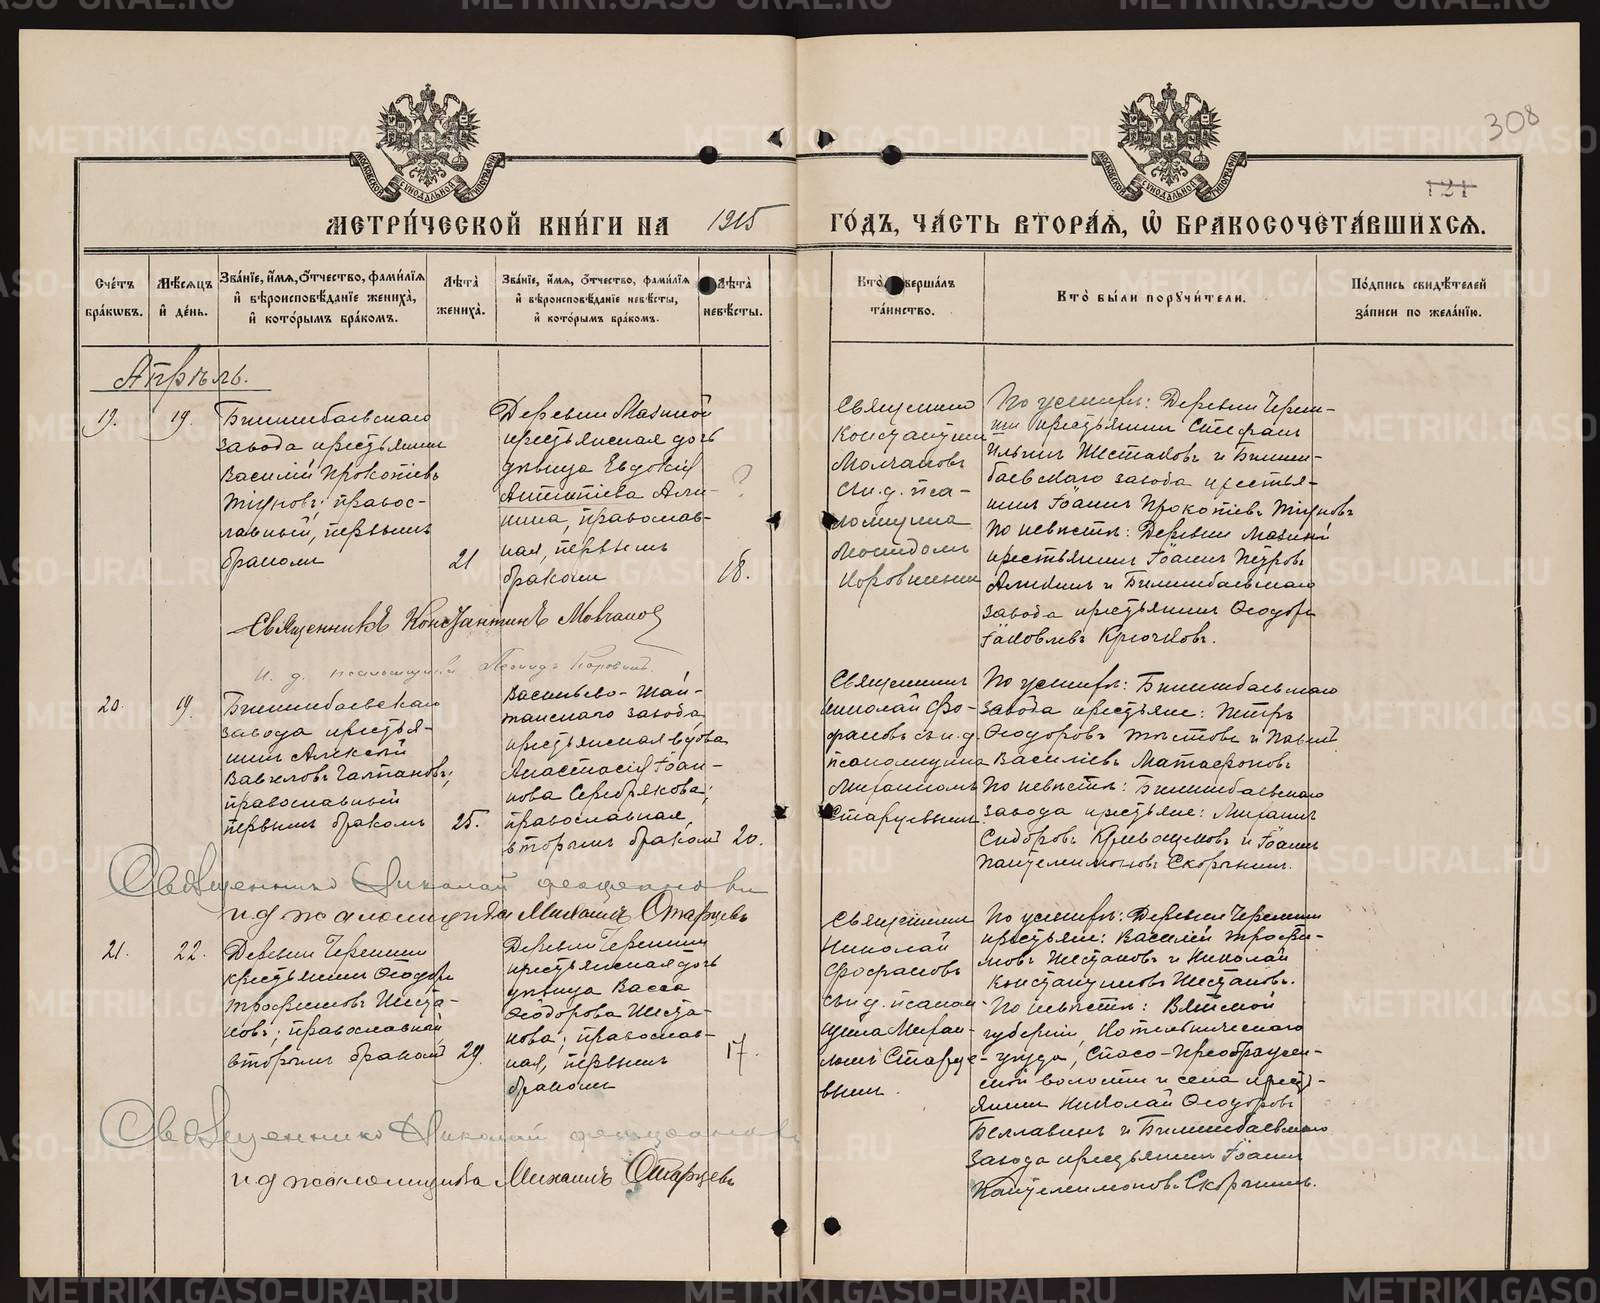 308
121
МЕТРИ́ЧЕСКОЙ КНИ́ГИ НА 1915 ГО́ДЪ, ЧА́СТЬ ВТОРА́Ѧ, Ѡ҆ БРАКОСОЧЕТА́ВШИХСѦ.
Сче́тъ бра́кѡвъ.
Мѣ́сѧцъ и҆ де́нь.
Зва́нїе, и҆́мѧ, ѻ҆́тчество, фами́лїѧ
и҆ вѣроисповѣ́данїе жениха̀,
и҆ кото́рымъ бра́комъ.
Лѣ́та̀
жениха̀.
Зва́нїе, и҆́мѧ, ѻ҆́тчество, фами́лїѧ
и҆ вѣроисповѣ́данїе невѣ́сты,
и҆ кото́рымъ бра́комъ.
Лѣ́та̀
невѣ́сты.
Кто̀ соверша́лъ
та́инство.
Кто̀ бы́ли порꙋчи́тели.
По́дпись свидѣ́телей
за́писи по жела́нїю.
Апрѣль.
19.
19.
Билимбаевскаго
завода крестьянинъ
Василій Прокопіевъ
Тіуновъ; правос-
лавный, первымъ
бракомъ
21
Деревни Мазиной
крестьянская дочь
дѣвица Евдокія
Антипіева Али-
кина, православ-
ная, первымъ
бракомъ
?
18.
Священникъ
Константинъ
Молчановъ
съ и. д. пса-
ломщика
Леонидомъ
Коровинымъ
По женихѣ: Деревни Черем-
ши крестьянинъ Стефанъ
Ильинъ Шестаковъ и Билим-
баевскаго завода крестья-
нинъ Іоаннъ Прокопіевъ Тіуновъ
По невѣстѣ: Деревни Мазиной
крестьянинъ Іоаннъ Петровъ
Аликинъ и Билимбаевскаго
завода крестьянинъ Ѳеодоръ
Іаковлевъ Крючковъ.
Священникъ Константинъ Молчановъ
и. д. псаломщика Леонидъ Коровинъ.
20.
19.
Билимбаевскаго
завода крестья-
нинъ Алексѣй
Вавиловъ Галпановъ;
православный
первымъ бракомъ
25.
Васильево-Шай-
танскаго завода
крестьянская вдова
Анастасія Іоан-
нова Серебрякова;
православная,
вторымъ бракомъ
20.
Священникъ
Николай Ѳео-
фановъ съ и.д.
псаломщика
Михаиломъ
Старцевымъ
По женихѣ: Билимбаевскаго
завода крестьяне: Петръ
Ѳеодоровъ Толстовъ и Павелъ
Василіевъ Матафоновъ
По невѣстѣ: Билимбаевскаго
завода крестьяне: Михаилъ
Сидоровъ Кривощековъ и Іоаннъ
Пантелеимоновъ Скорынинъ.
Священникъ Николай Ѳеофановъ
и д псаломщика Михаилъ Старцевъ
21.
22.
Деревни Черемши
крестьянинъ Ѳеодоръ
Трофимовъ Шеста-
ковъ; православный
вторымъ бракомъ
29.
Деревни Черемши
крестьянская дочь
дѣвица Васса
Ѳеодорова Шеста-
кова; православ-
ная, первымъ
бракомъ
17.
Священникъ
Николай
Ѳеофановъ
съ и д. псалом-
щика Михаи-
ломъ Старце-
вымъ.
По женихѣ: Деревни Черемши
крестьяне: Василій Трофи-
мовъ Шестаковъ и Николай
Константиновъ Шестаковъ.
По невѣстѣ: Вятской
губерніи, Котельническаго
уѣзда, Спасо-Преображен-
ской волости и села крест-
янинъ Николай Ѳеодоровъ
Беллавинъ и Билимбаевскаго
завода крестьянинъ Іоаннъ
Пантелеимоновъ Скорынинъ.
Священникъ Николай Ѳеофановъ
и д псаломщика Михаилъ Старцевъ
METRIKI.GASO-URAL.RU